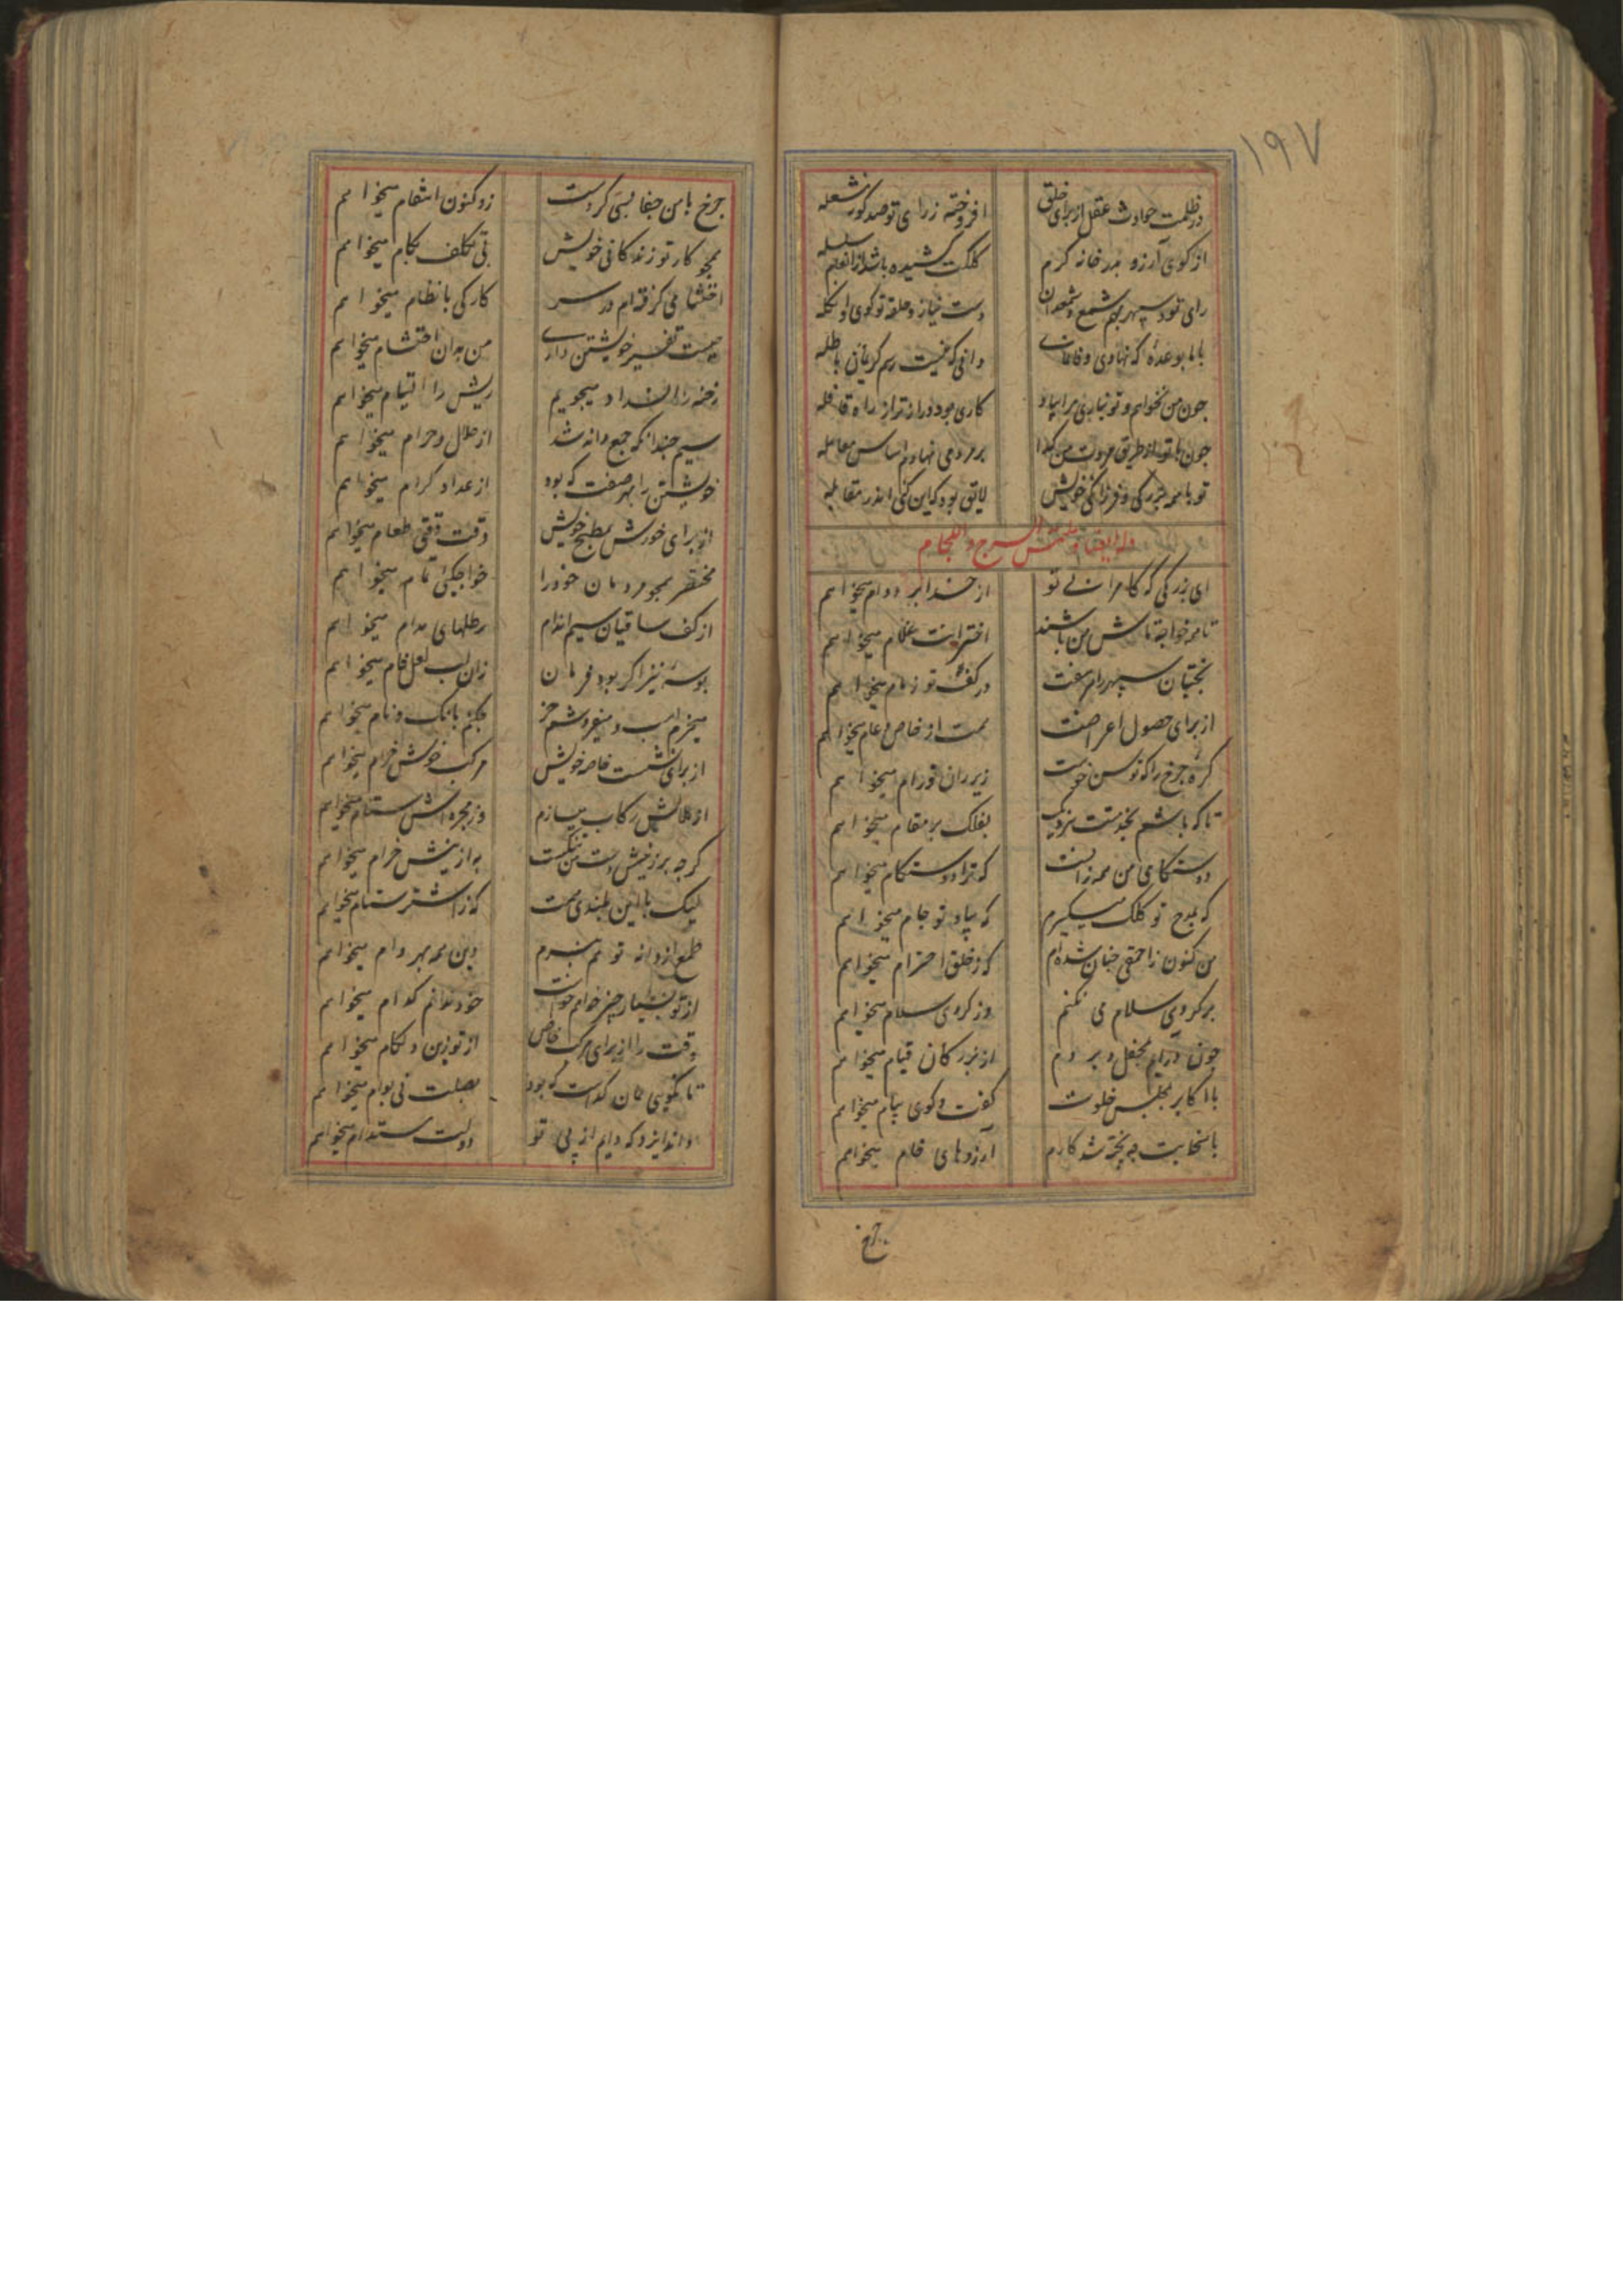 ۱۹۷
در ظلمت حوادث عقل از برای خلق افروخته ز رای تو صد کوره شعله
از کوی آرزو بدر خانه کرم کلکت کشیده باشد از انعام سلسله
رای تو و سپهر بهم شمع و شمعدان دست نیاز و حلقه تو کوی و انکله
با ما بوعدهٔ که نهادی وفا نمای دانی که نیست رسم کریمان مماطله
چون من نخواهم و تو نیاری مرا بیاد کاری بود دورازتر از راه قافله
چون با تو از طریق مروت من کدا بر مردمی نهاده‌ام اساس معامله
تو با همه بزرکی و فرزانکی خویش لایق بود که این کنی اندر مقابله
وله ایضا و یلتمس السرج و اللجام
ای بزرکی که کامرانی تو از خدا بر دوام میخواهم
تا همه خواجه تاش من باشند اخترانت غلام میخواهم
بختیان سپهر را هر هفت در کف تو زمام میخواهم
از برای حصول اغراضت همت از خاص و عام میخواهم
کرهٔ چرخ را که توسن خوست زیر ران تو رام میخواهم
تا که باشم بخدمتت نزدیک بفلک بر مقام میخواهم
دوستکامی من همه زانست که ترا دوستکام میخواهم
که بمدح تو کلک میکیرم که بیاد تو جام میخواهم
من کنون ز احمقی چنان شده‌ام که ز خلق احترام میخواهم
بر کروهی سلام می نکنم وز کروهی سلام میخواهم
چون درایم بمحفل و بروم از بزرکان قیام میخواهم
با اکابر بمجلس خلوت کفت و کوی پیام میخواهم
با سخایت چو پخته شد کارم آرزوهای خام میخواهم
چرخ
چرخ با من جفا بسی کردست زو کنون انتقام میخواهم
همچو کار تو زندکانی خویش بی تکلف بکام میخواهم
احتشامی کرفته‌ام در سر کارکی با نظام میخواهم
چیست تفسیر خویشتن داری من بدان احتشام میخواهم
رخنه را انسداد میجویم ریش را التیام میخواهم
سیم چندانکه جمع دانه شد از حلال و حرام میخواهم
خویشتن را بهر صفت که بود از عداد کرام میخواهم
از برای خورش بمطبخ خویش وقت وقتی طعام میخواهم
مختصر همچو مردمان خود را خواجکی تمام میخواهم
از کف ساقیان سیم اندام رطلهای مدام میخواهم
بوسهٔ نیز اکر بود فرمان زان لب لعل فام میخواهم
میخرم اسب و میفروشم خز چکنم بانک و نام میخواهم
از برای نشست خاصه خویش مرکب خوش خرام میخواهم
از هلالش رکاب میسازم وز مجره‌اش ستام میخواهم
کرچه بر زنیش دست من نکست به ازینش خرام میخواهم
لیک با این بلندی همت که ز اشتر ستام میخواهم
طمع از دانه تو هم نبرم وین همه بهر دام میخواهم
از تو بسیار چیز خواهم خواست خود ندانم کدام میخواهم
وقت را از برای مرکب خاص از تو زین و لکام میخواهم
تا نکویی همان کداست که بود بصلت نی بوام میخواهم
داند ایزد که دایم از پی تو دولت مستدام میخواهم